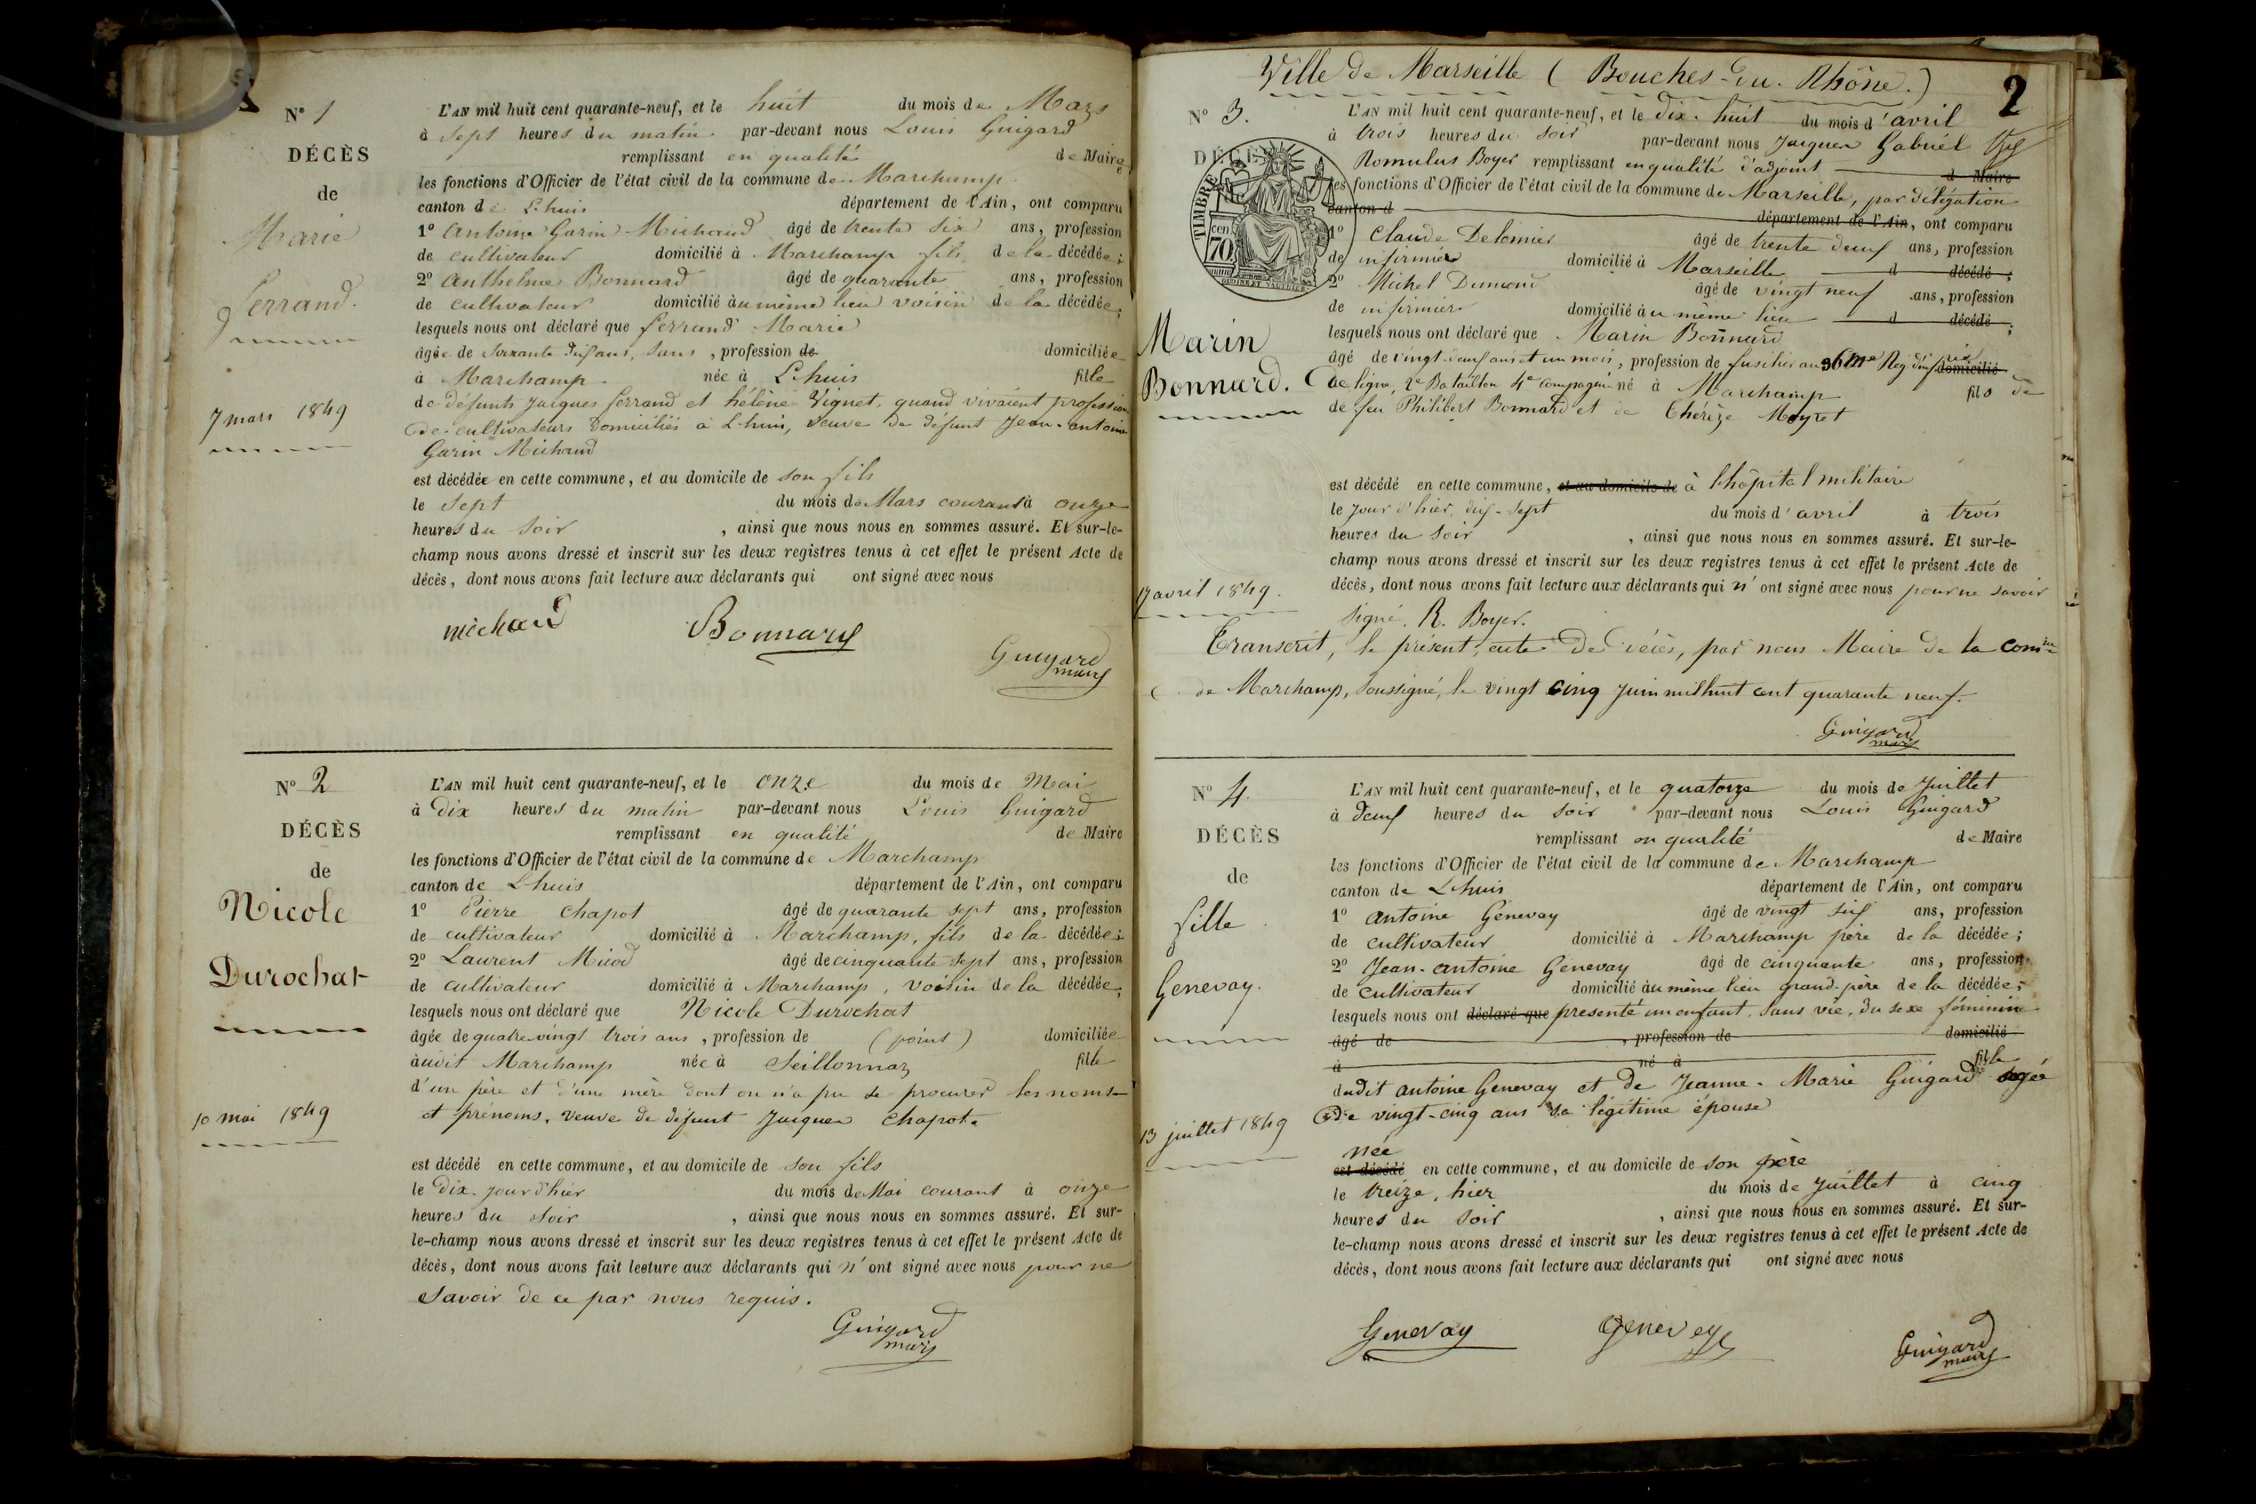 N° 1
DÉCÈS
de
Marie
Ferrand.
7 mars 1849
L'AN mil huit cent quarante-neuf, et le huit du mois de Mars
à sept heures du matin par-devant nous Louis Guigard
remplissant en qualité de Maire
les fonctions d'Officier de l'état civil de la commune de Marchamp
canton de Lhuis département de l'Ain, ont comparu
1° Antoine Garin Michaud âgé de trente six ans, profession
de cultivateur domicilié à Marchamp fils de la décédée;
2° Anthelme Bonnard âgé de quarante ans, profession
de cultivateur domicilié au même lieu voisin de la décédée;
lesquels nous ont déclaré que Ferrand Marie
âgée de soixante dix ans, sans, profession de domiciliée
à Marchamp. née à Lhuis fille
de défunts Jacques Ferrand et hélène Vignet, quand vivaient profession
de cultivateurs domiciliés à Lhuis, veuve de défunt Jean-antoine
Garin Michaud
est décédée en cette commune, et au domicile de son fils
le sept du mois de Mars courant à onze
heures du soir, ainsi que nous nous en sommes assuré. Et sur-le-
champ nous avons dressé et inscrit sur les deux registres tenus à cet effet le présent Acte de
décès, dont nous avons fait lecture aux déclarants qui ont signé avec nous
michaud Bonnard
Guigard
maire
N° 2
DÉCÈS
de
Nicole
Durochat
10 mai 1849
L'AN mil huit cent quarante-neuf, et le onze du mois de Mai
à dix heures du matin par-devant nous Louis Guigard
remplissant en qualité de Maire
les fonctions d'Officier de l'état civil de la commune de Marchamp
canton de Lhuis département de l'Ain, ont comparu
1° Pierre Chapot âgé de quarante sept ans, profession
de cultivateur domicilié à Marchamp, fils de la décédée;
2° Laurent Micod âgé de cinquante sept ans, profession
de cultivateur domicilié à Marchamp, voisin de la décédée;
lesquels nous ont déclaré que Nicole Durochat
âgée de quatre-vingt trois ans, profession de (point) domiciliée
audit Marchamp née à Seillonnaz fille
d'un père et d'une mère dont on n'a pu se procurer les noms
et prénoms, veuve de défunt Jacques Chapot.
est décédé en cette commune, et au domicile de son fils
le dix jour d'hier du mois de Mai courant à onze
heures du soir, ainsi que nous nous en sommes assuré. Et sur-
le-champ nous avons dressé et inscrit sur les deux registres tenus à cet effet le présent Acte de
décès, dont nous avons fait lecture aux déclarants qui n'ont signé avec nous pour ne
savoir de ce par nous requis.
Guigard
maire
Ville de Marseille (Bouches-du-Rhône.)
2
N° 3.
DÉCÈS
TIMBRE
70
cen
Marin
Bonnard.
17 avril 1849.
L'AN mil huit cent quarante-neuf, et le dix-huit du mois d'avril
à trois heures du soir par-devant nous Jacques Gabriel
Romulus Boyer remplissant en qualité d'adjoint d Maire
les fonctions d'Officier de l'état civil de la commune de Marseille, par délégation
canton d département de l'Ain, ont comparu
1° Claude Delomier âgé de trente deux ans, profession
de infirmier domicilié à Marseille d décédé;
2° Michel Dumond âgé de vingt neuf ans, profession
de infirmier domicilié au même lieu d décédé;
lesquels nous ont déclaré que Marin Bonnard
âgé de vingt-deux ans et un mois, profession de fusilier au 36me Reg d'inf domicilié
de ligne, 2e Bataillon 4e compagnie né à Marchamp fils de
de feu Philibert Bonnard et de Thérèze Meyret
est décédé en cette commune, et au domicile de à l'hôpital militaire
le jour d'hier, dix-sept du mois d'avril à trois
heures du soir, ainsi que nous nous en sommes assuré. Et sur-le-
champ nous avons dressé et inscrit sur les deux registres tenus à cet effet le présent Acte de
décès, dont nous avons fait lecture aux déclarants qui n'ont signé avec nous pour ne savoir
signé. R. Boyer.
Transcrit, le présent acte de décès, par nous Maire de la comne
de Marchamp, soussigné, le vingt cinq Juin mil huit cent quarante neuf.
Guigard
maire
N° 4.
DÉCÈS
de
fille
Genevay.
13 juillet 1849
L'AN mil huit cent quarante-neuf, et le quatorze du mois de Juillet
à deux heures du soir par-devant nous Louis Guigard
remplissant en qualité de Maire
les fonctions d'Officier de l'état civil de la commune de Marchamp
canton de Lhuis département de l'Ain, ont comparu
1° Antoine Genevay âgé de vingt six ans, profession
de cultivateur domicilié à Marchamp père de la décédée;
2° Jean-antoine Genevay âgé de cinquante ans, profession
de cultivateur domicilié au même lieu grand-père de la décédée;
lesquels nous ont déclaré que présenté un enfant, sans vie, du sexe féminin
âgé de, profession de domicilié
à né à fille
dudit antoine Genevay et de Jeanne-Marie Guigard agée
de vingt-cinq ans sa légitime épouse
née
est décédé en cette commune, et au domicile de son père
le treize, hier du mois de Juillet à cinq
heures du soir, ainsi que nous nous en sommes assuré. Et sur-
le-champ nous avons dressé et inscrit sur les deux registres tenus à cet effet le présent Acte de
décès, dont nous avons fait lecture aux déclarants qui ont signé avec nous
Genevay Genevey
Guigard
maire